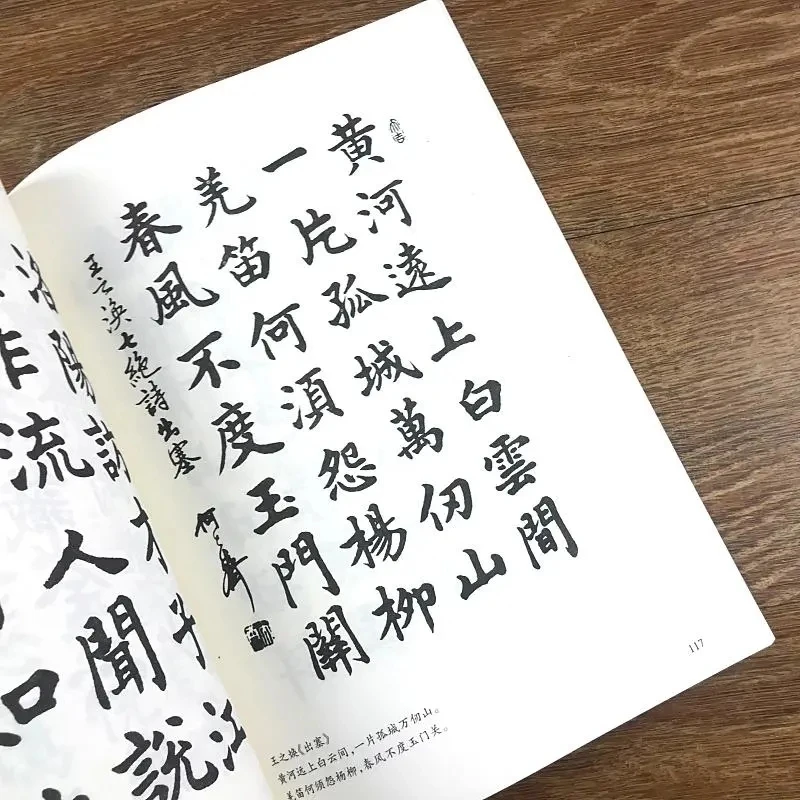 洛陽訪才子江
作流人聞說
黄河遠上白雲間
一片孤城萬仞山
羌笛何湏怨楊柳
春風不度玉門關
王之渙七絶詩出塞 何
王之焕《出塞》
黄河远上白云间，一片孤城万仞山。
羌笛何须怨杨柳，春风不度玉门关。
117